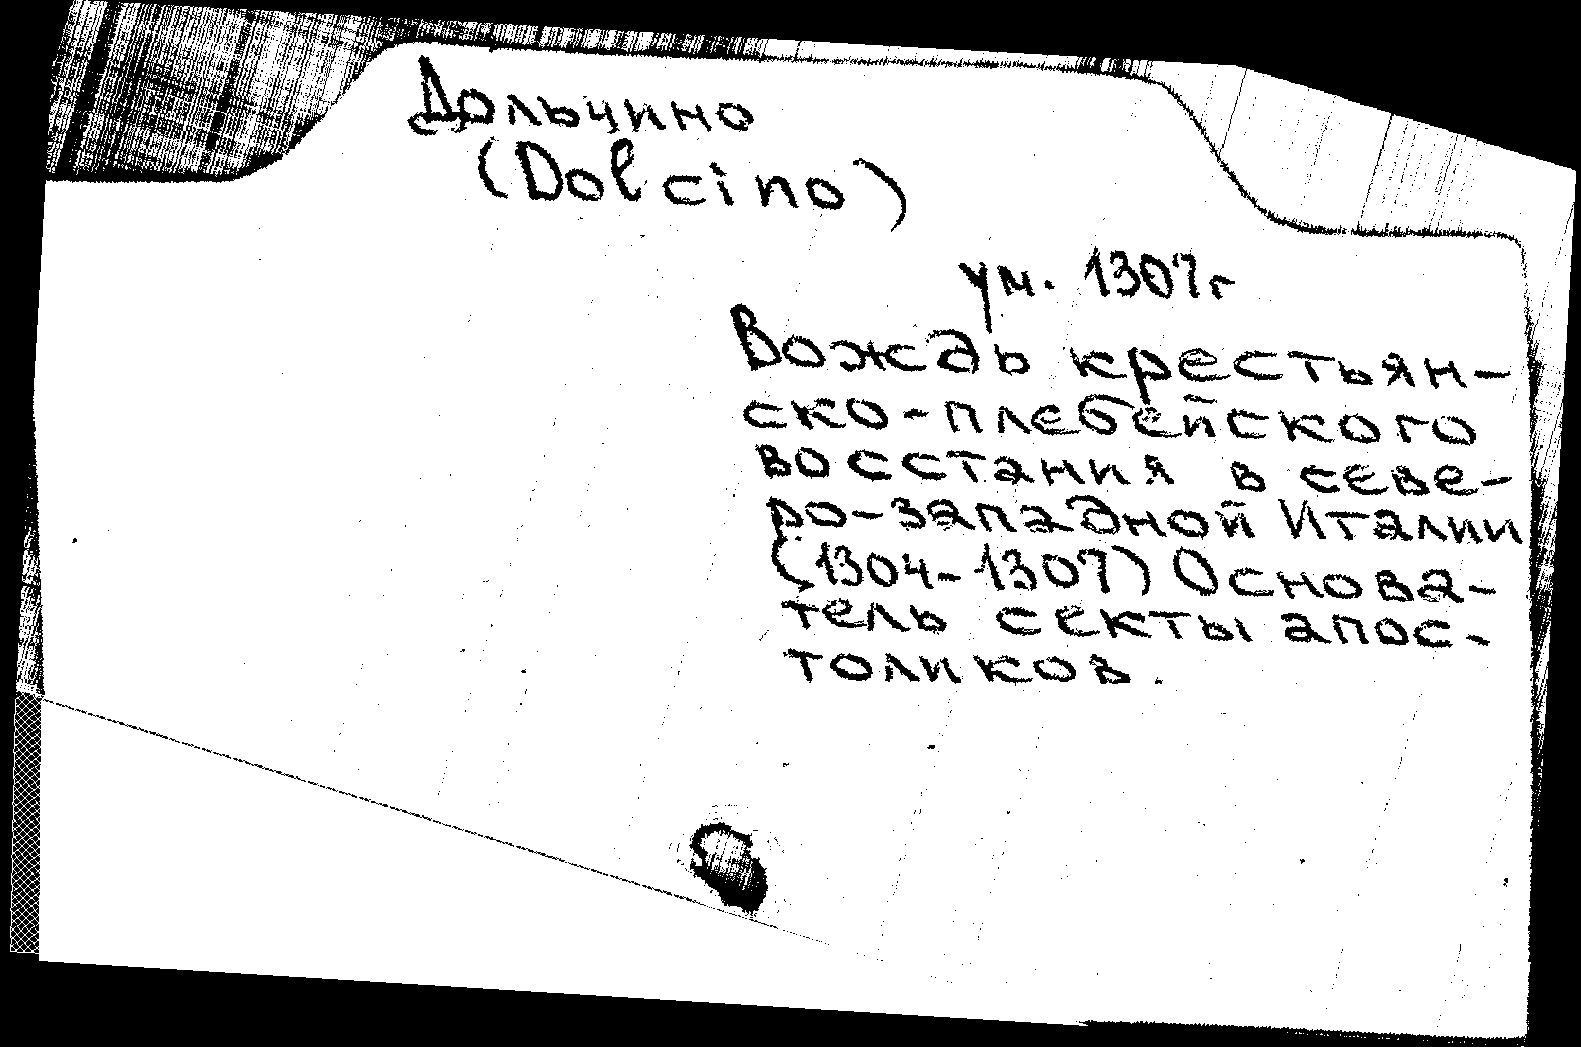 Дольчино
(Dolcino)
ум. 1307г
Вождь крестьян-
ско-плебейского
восстания в севе-
ро-западной Италии
(1304-1307) Основа-
тель секты апос-
толиков.